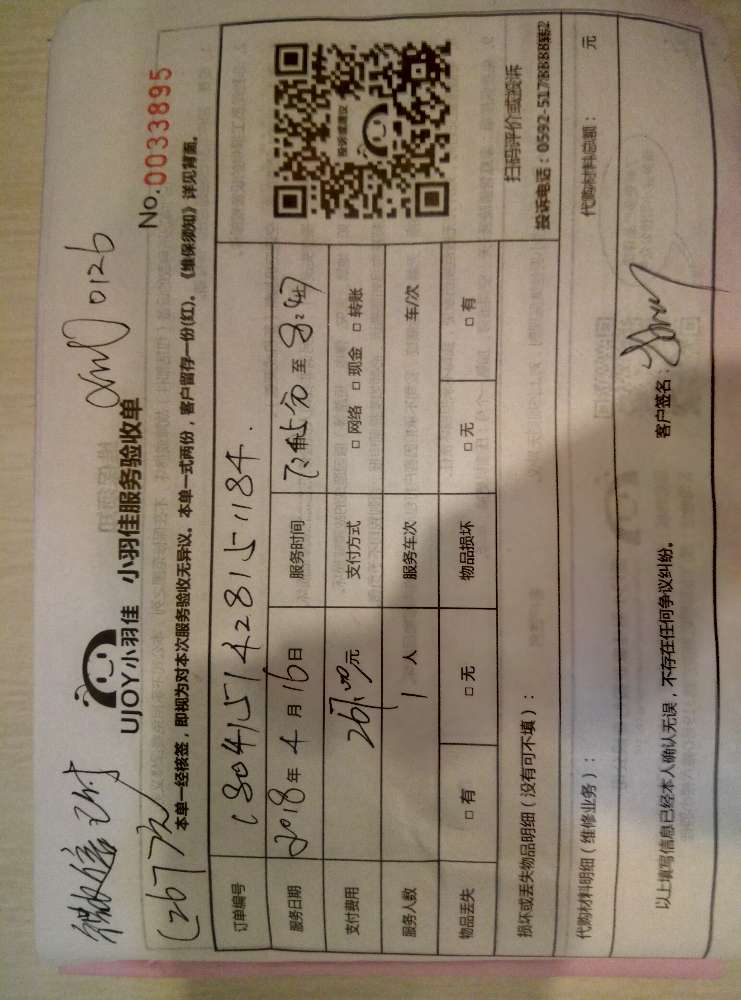 微信已付
(267元)
0126
UJOY小羽佳 小羽佳服务验收单
No.0033895
本单一经核签，即视为对本次服务验收无异议。本单一式两份，客户留存一份(红)。《维保须知》详见背面。
订单编号 1804151428151184.
服务日期 2018年4月16日 服务时间 至
支付费用 267.00元 支付方式 □ 网络 □ 现金 □ 转账
服务人数 1 人 服务车次 车/次
物品丢失 □ 有 □ 无 物品损坏 □ 无 □ 有
投诉或建议
扫码评价或投诉
投诉电话：0592-5178888转2
损坏或丢失物品明细（没有可不填）：
代购材料明细（维修业务）： 代购材料总额： 元
以上填写信息已经本人确认无误，不存在任何争议纠纷。 客户签名：